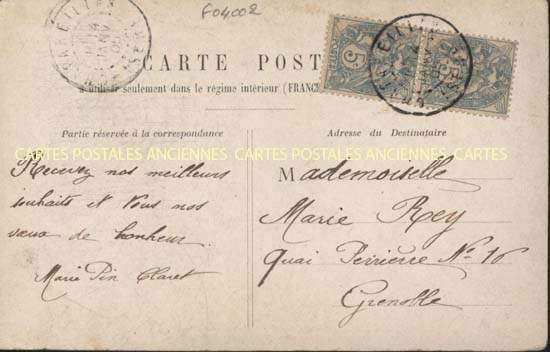 F04002
CARTE POST
à utiliser seulement dans le régime intérieur (FRANCE
Partie réservée à la correspondance
Adresse du Destinataire
CARTES POSTALES ANCIENNES CARTES POSTALES ANCIENNES CARTES
Recevez nos meilleurs
souhaits et tous nos
vœux de bonheur.
Marie Pin Claret
Mademoiselle
Marie Rey
Quai Perrière No 16
Grenoble